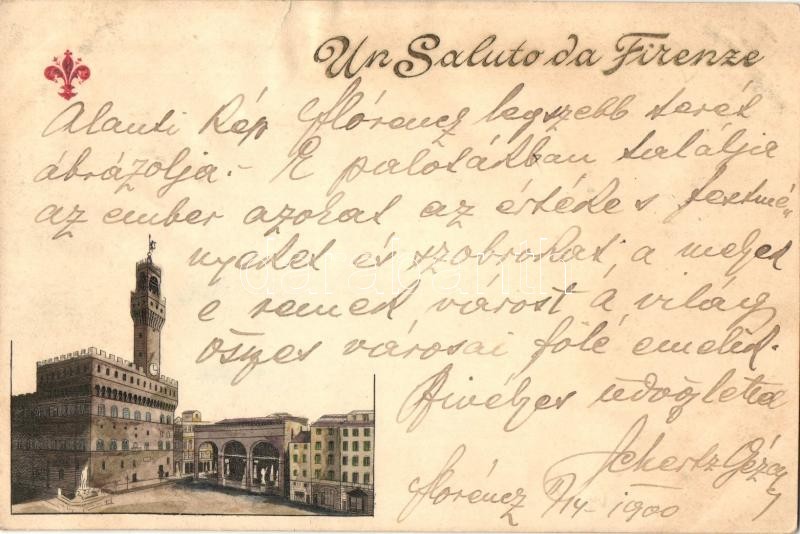 Un Saluto da Firenze
Alanti kép Flórencz legszebb terét
ábrázolja.- E palotákban találja
az ember azokat az értékes festmé-
nyeket és szobrokat, a melyek
e remek várost a világ
összes városai fölé emelik.
Szivélyes üdvözlettel
Schertz Géza
Flórencz 1900
darabanth